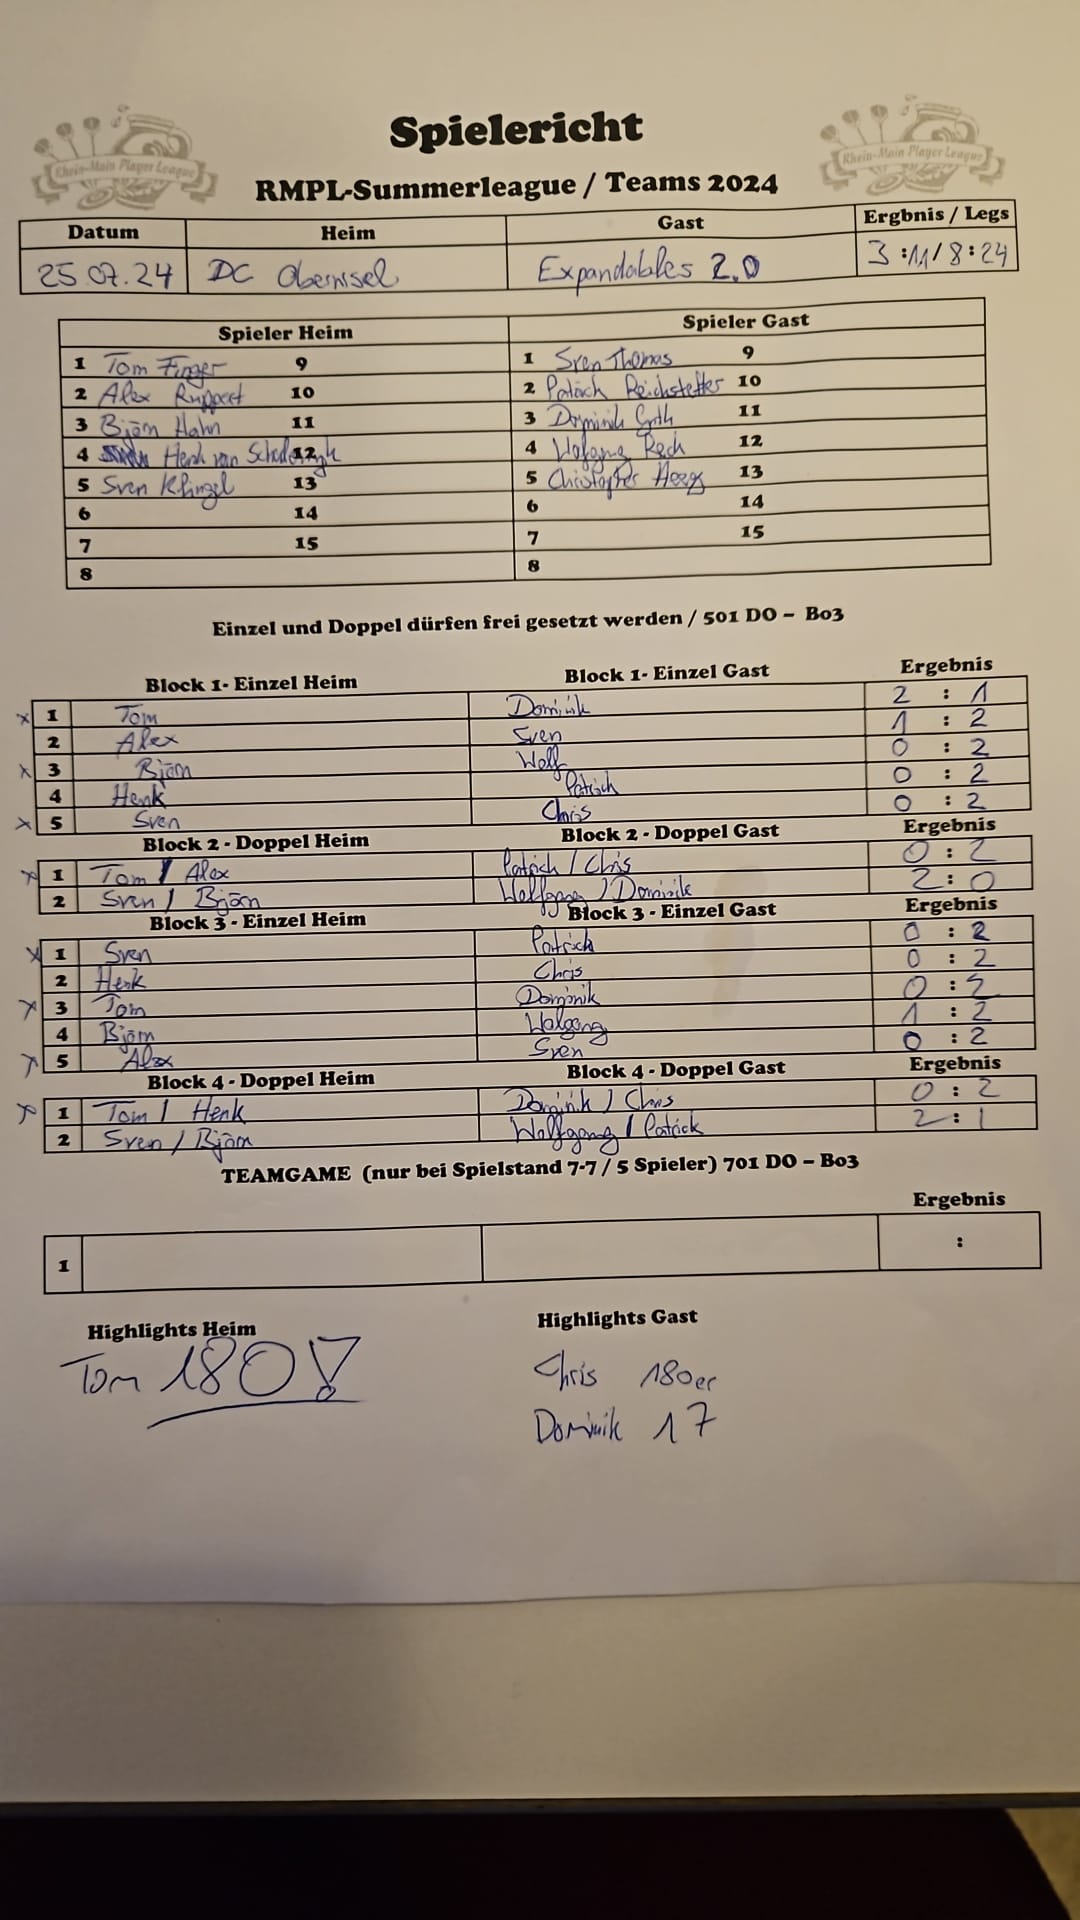 Rhein-Main Player League
Rhein-Main Player League
Spielericht
RMPL-Summerleague / Teams 2024
Datum Heim Gast Ergbnis / Legs
25.07.24 DC Obernisel Expandables 2.0 3:11/8:24
Spieler Heim Spieler Gast
1 Tom Finger 9 1 Sven Thomas 9
2 Alex Ruppert 10 2 Patrick Reichstetter 10
3 Björn Hahn 11 3 Dominik 11
4 Henk van 12 4 Wolfgang Rech 12
5 Sven Klingel 13 5 Christopher Heeg 13
6 14 6 14
7 15 7 15
8 8
Einzel und Doppel dürfen frei gesetzt werden / 501 DO – Bo3
Block 1- Einzel Heim Block 1- Einzel Gast Ergebnis
x 1 Tom Dominik 2 : 1
2 Alex Sven 1 : 2
x 3 Björn Wolf 0 : 2
4 Henk Patrick 0 : 2
x 5 Sven Chris 0 : 2
Block 2 - Doppel Heim Block 2 - Doppel Gast Ergebnis
x 1 Tom / Alex Patrick / Chris 0 : 2
2 Sven / Björn Wolfgang / Dominik 2 : 0
Block 3 - Einzel Heim Block 3 - Einzel Gast Ergebnis
x 1 Sven Patrick 0 : 2
2 Henk Chris 0 : 2
x 3 Tom Dominik 0 : 2
4 Björn Wolgang 1 : 2
x 5 Alex Sven 0 : 2
Block 4 - Doppel Heim Block 4 - Doppel Gast Ergebnis
x 1 Tom / Henk Dominik / Chris 0 : 2
2 Sven / Björn Wolfgang / Patrick 2 : 1
TEAMGAME (nur bei Spielstand 7-7 / 5 Spieler) 701 DO – Bo3
Ergebnis
1 :
Highlights Heim Highlights Gast
Tom 180! Chris 180er
Dominik 17